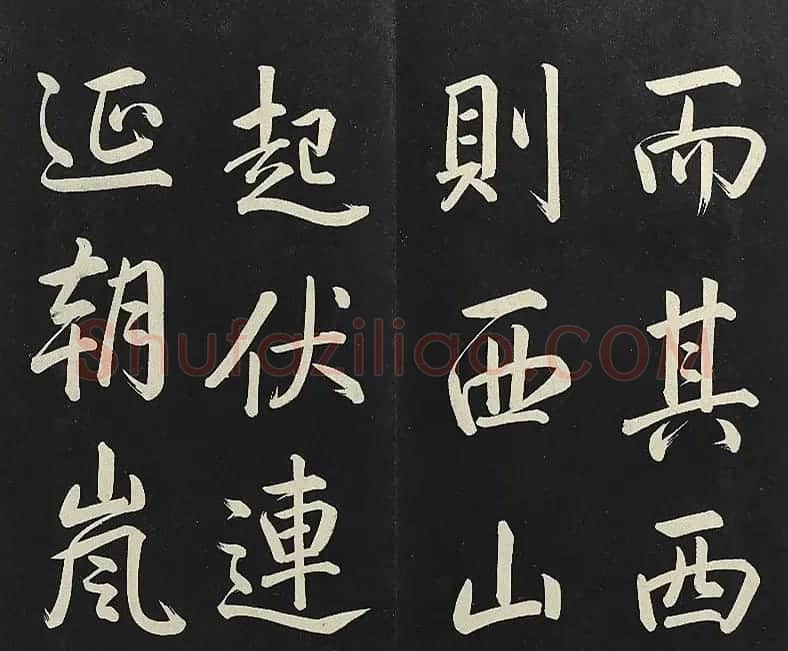 而其西
則西山
起伏連
延朝嵐
Shufaziliao.COM